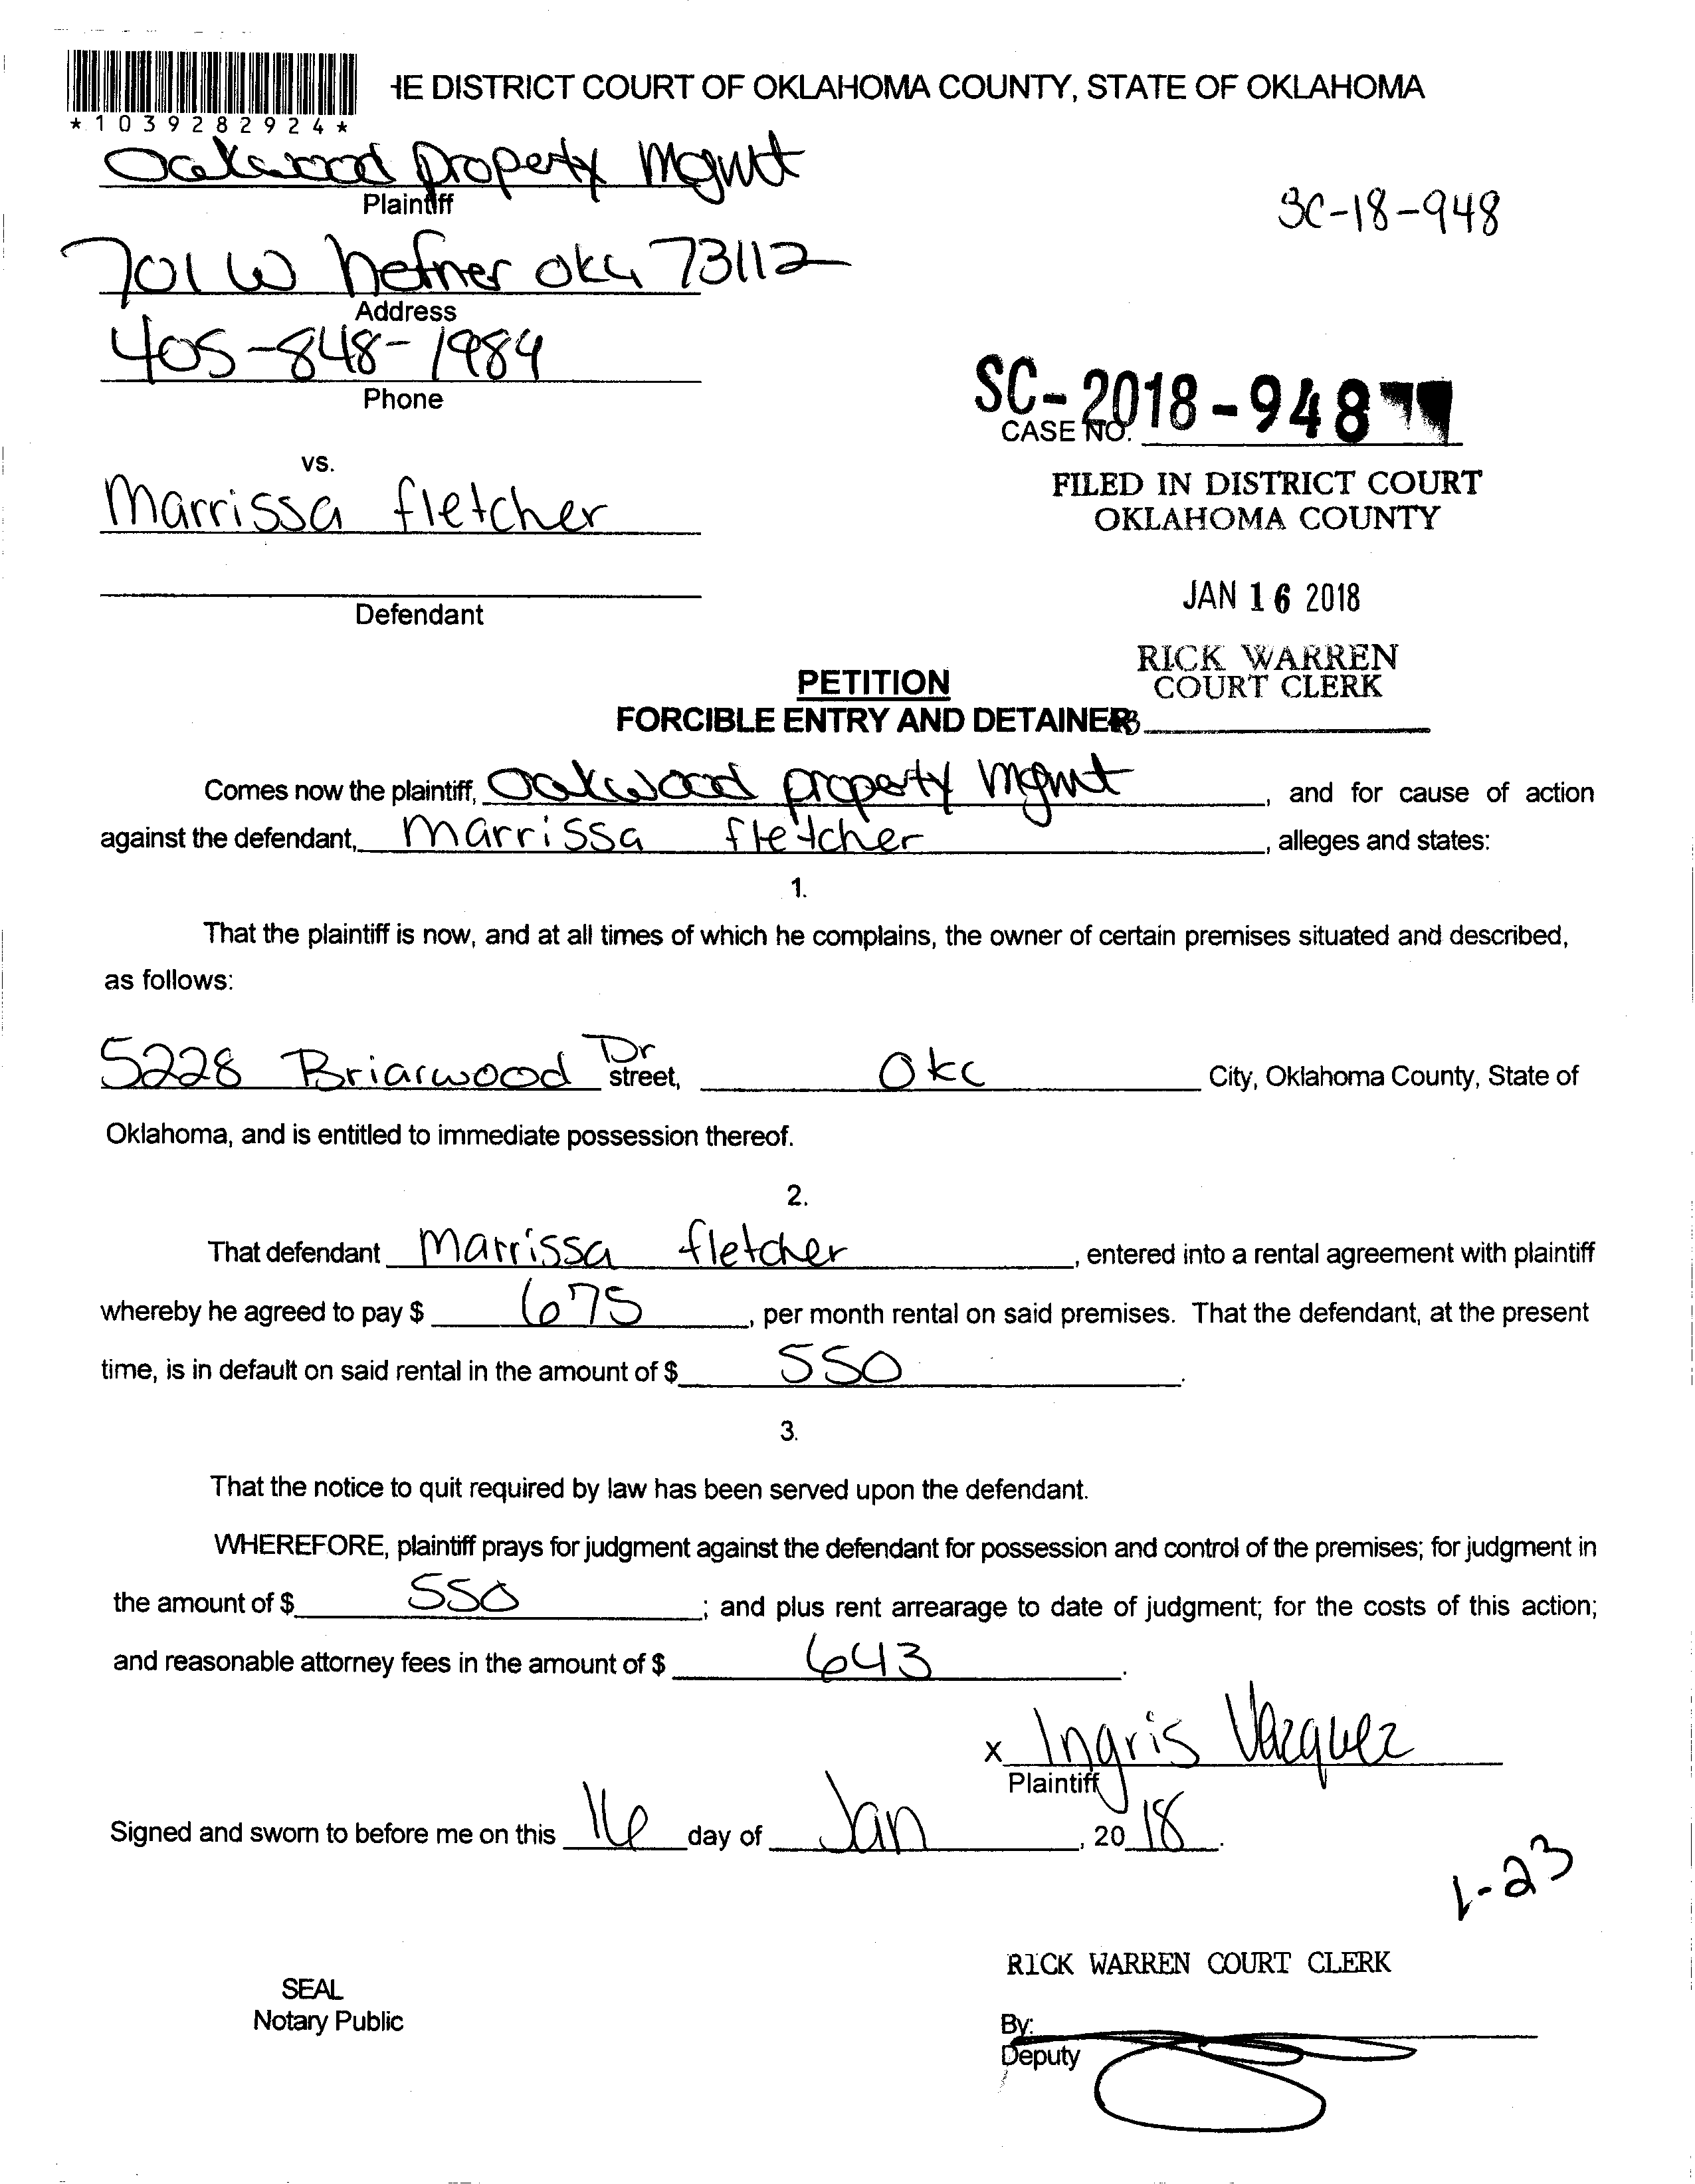 HE DISTRICT COURT OF OKLAHOMA COUNTY, STATE OF OKLAHOMA
*1039282924*
Oakwood property Mgmt
Plaintiff
SC-18-948
701 W hefner okc 73112
Address
405-848-1984
Phone
SC-2018-948
CASE NO.
vs.
Marrissa fletcher
FILED IN DISTRICT COURT
OKLAHOMA COUNTY
Defendant
JAN 16 2018
RICK WARREN
COURT CLERK
PETITION
FORCIBLE ENTRY AND DETAINER
Comes now the plaintiff, Oakwood property Mgmt, and for cause of action
against the defendant, Marrissa fletcher, alleges and states:
1.
That the plaintiff is now, and at all times of which he complains, the owner of certain premises situated and described,
as follows:
5228 Briarwood Dr street, Okc City, Oklahoma County, State of
Oklahoma, and is entitled to immediate possession thereof.
2.
That defendant Marrissa fletcher, entered into a rental agreement with plaintiff
whereby he agreed to pay $ 675, per month rental on said premises. That the defendant, at the present
time, is in default on said rental in the amount of $ 550.
3.
That the notice to quit required by law has been served upon the defendant.
WHEREFORE, plaintiff prays for judgment against the defendant for possession and control of the premises; for judgment in
the amount of $ 550; and plus rent arrearage to date of judgment; for the costs of this action;
and reasonable attorney fees in the amount of $ 643.
x Ingris Vazquez
Plaintiff
Signed and sworn to before me on this 16 day of Jan, 20 18.
1-23
RICK WARREN COURT CLERK
SEAL
Notary Public
By:
Deputy